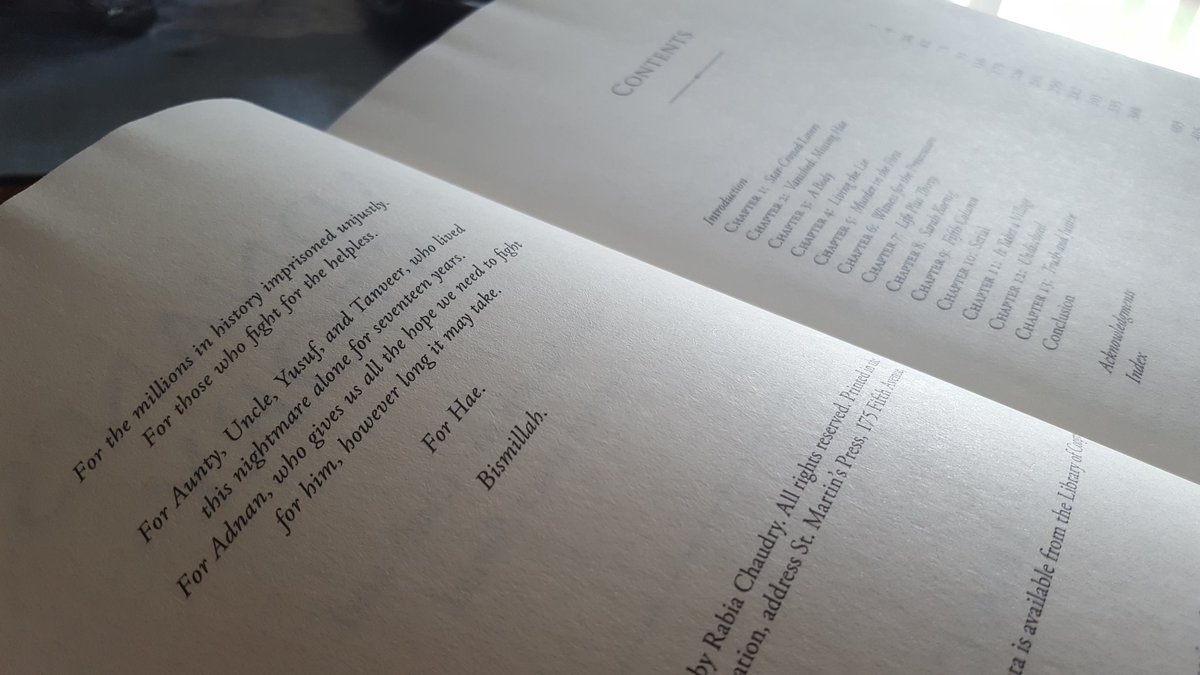 For the millions in history imprisoned unjustly.
For those who fight for the helpless.
For Aunty, Uncle, Yusuf, and Tanveer, who lived
this nightmare alone for seventeen years.
For Adnan, who gives us all the hope we need to fight
for him, however long it may take.
For Hae.
Bismillah.
by Rabia Chaudry. All rights reserved. Printed in the
ation, address St. Martin's Press, 175 Fifth Avenue,
ta is available from the Library of Cong
CONTENTS
Introduction
CHAPTER 1: Star-Crossed Lovers
CHAPTER 2: Vanished, Missing Hae
CHAPTER 3: A Body
CHAPTER 4: Living the Lie
CHAPTER 5: Murder in the First
CHAPTER 6: Witness for the Prosecution
CHAPTER 7: Life Plus Thirty
CHAPTER 8: Sarah Koenig
CHAPTER 9: Fifth Column
CHAPTER 10: Serial
CHAPTER 11: It Takes a Village
CHAPTER 12: Undisclosed
CHAPTER 13: Truth and Justice
Conclusion
Acknowledgments
Index